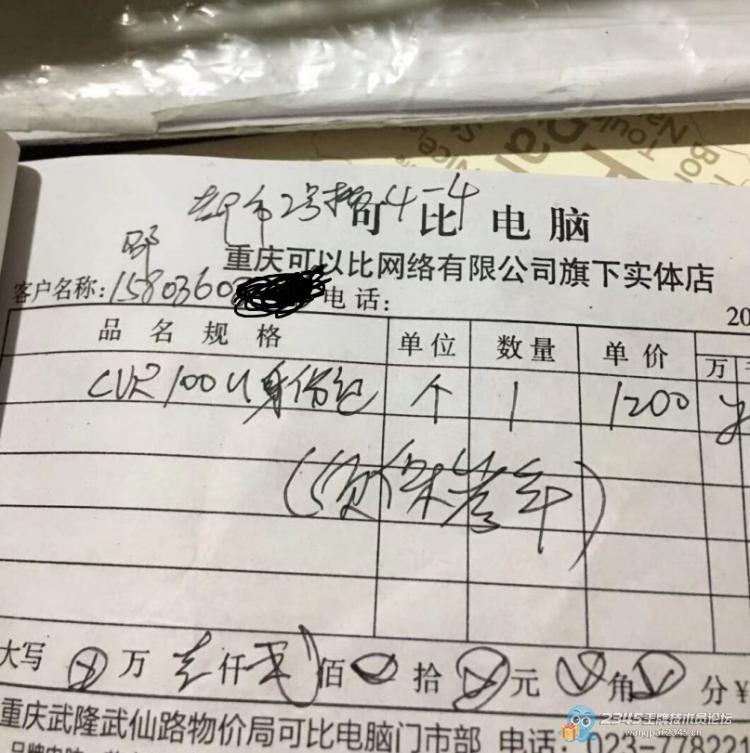 可比电脑
重庆可以比网络有限公司旗下实体店
客户名称：15803602 电话：
20
品名规格 单位 数量 单价 万
CVR100U身份证 个 1 1200
(质保壹年)
大写 万 壹仟贰佰 拾 元 角 分 ¥
重庆武隆武仙路物价局可比电脑门市部 电话：023-778221
2345王牌技术员论坛
wangpai.2345.cn